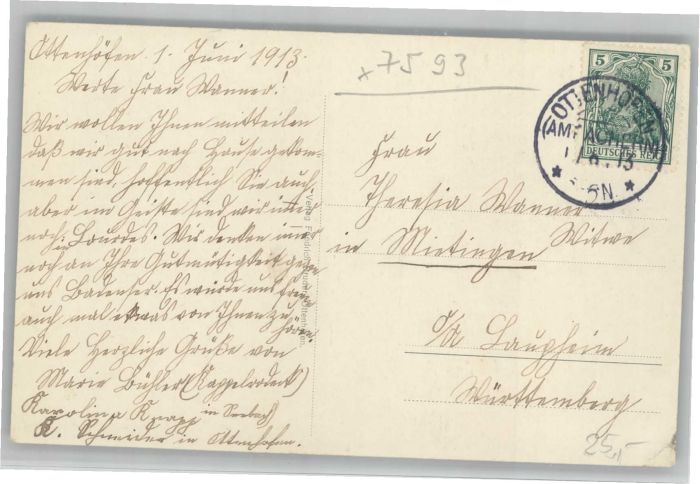 Ottenhöfen 1. Juni 1913.
Werte Frau Wanner!
Wir wollen Ihnen mitteilen
daß wir gut nach Hause gekom-
men sind, hoffentlich Sie auch
aber im Geiste sind wir
noch in Lourdes. Wir denken immer
noch an Ihre Gutmütigkeit gegen
uns Badenser. Es würde uns freuen
auch mal etwas von Ihnen zu
hören.
Viele Herzliche Grüße von
Marie Bühler (Kappelrodeck)
Karolina Knapp in Seebach
K. Schneider in Ottenhöfen.
x 7593
5 5
DEUTSCHES REICH
OTTENHÖFEN
(AMT ACHERN)
1.6.13
N
Frau
Theresia Wanner
Witwe
in Mietingen
o/a Laupheim
Württemberg
25,-